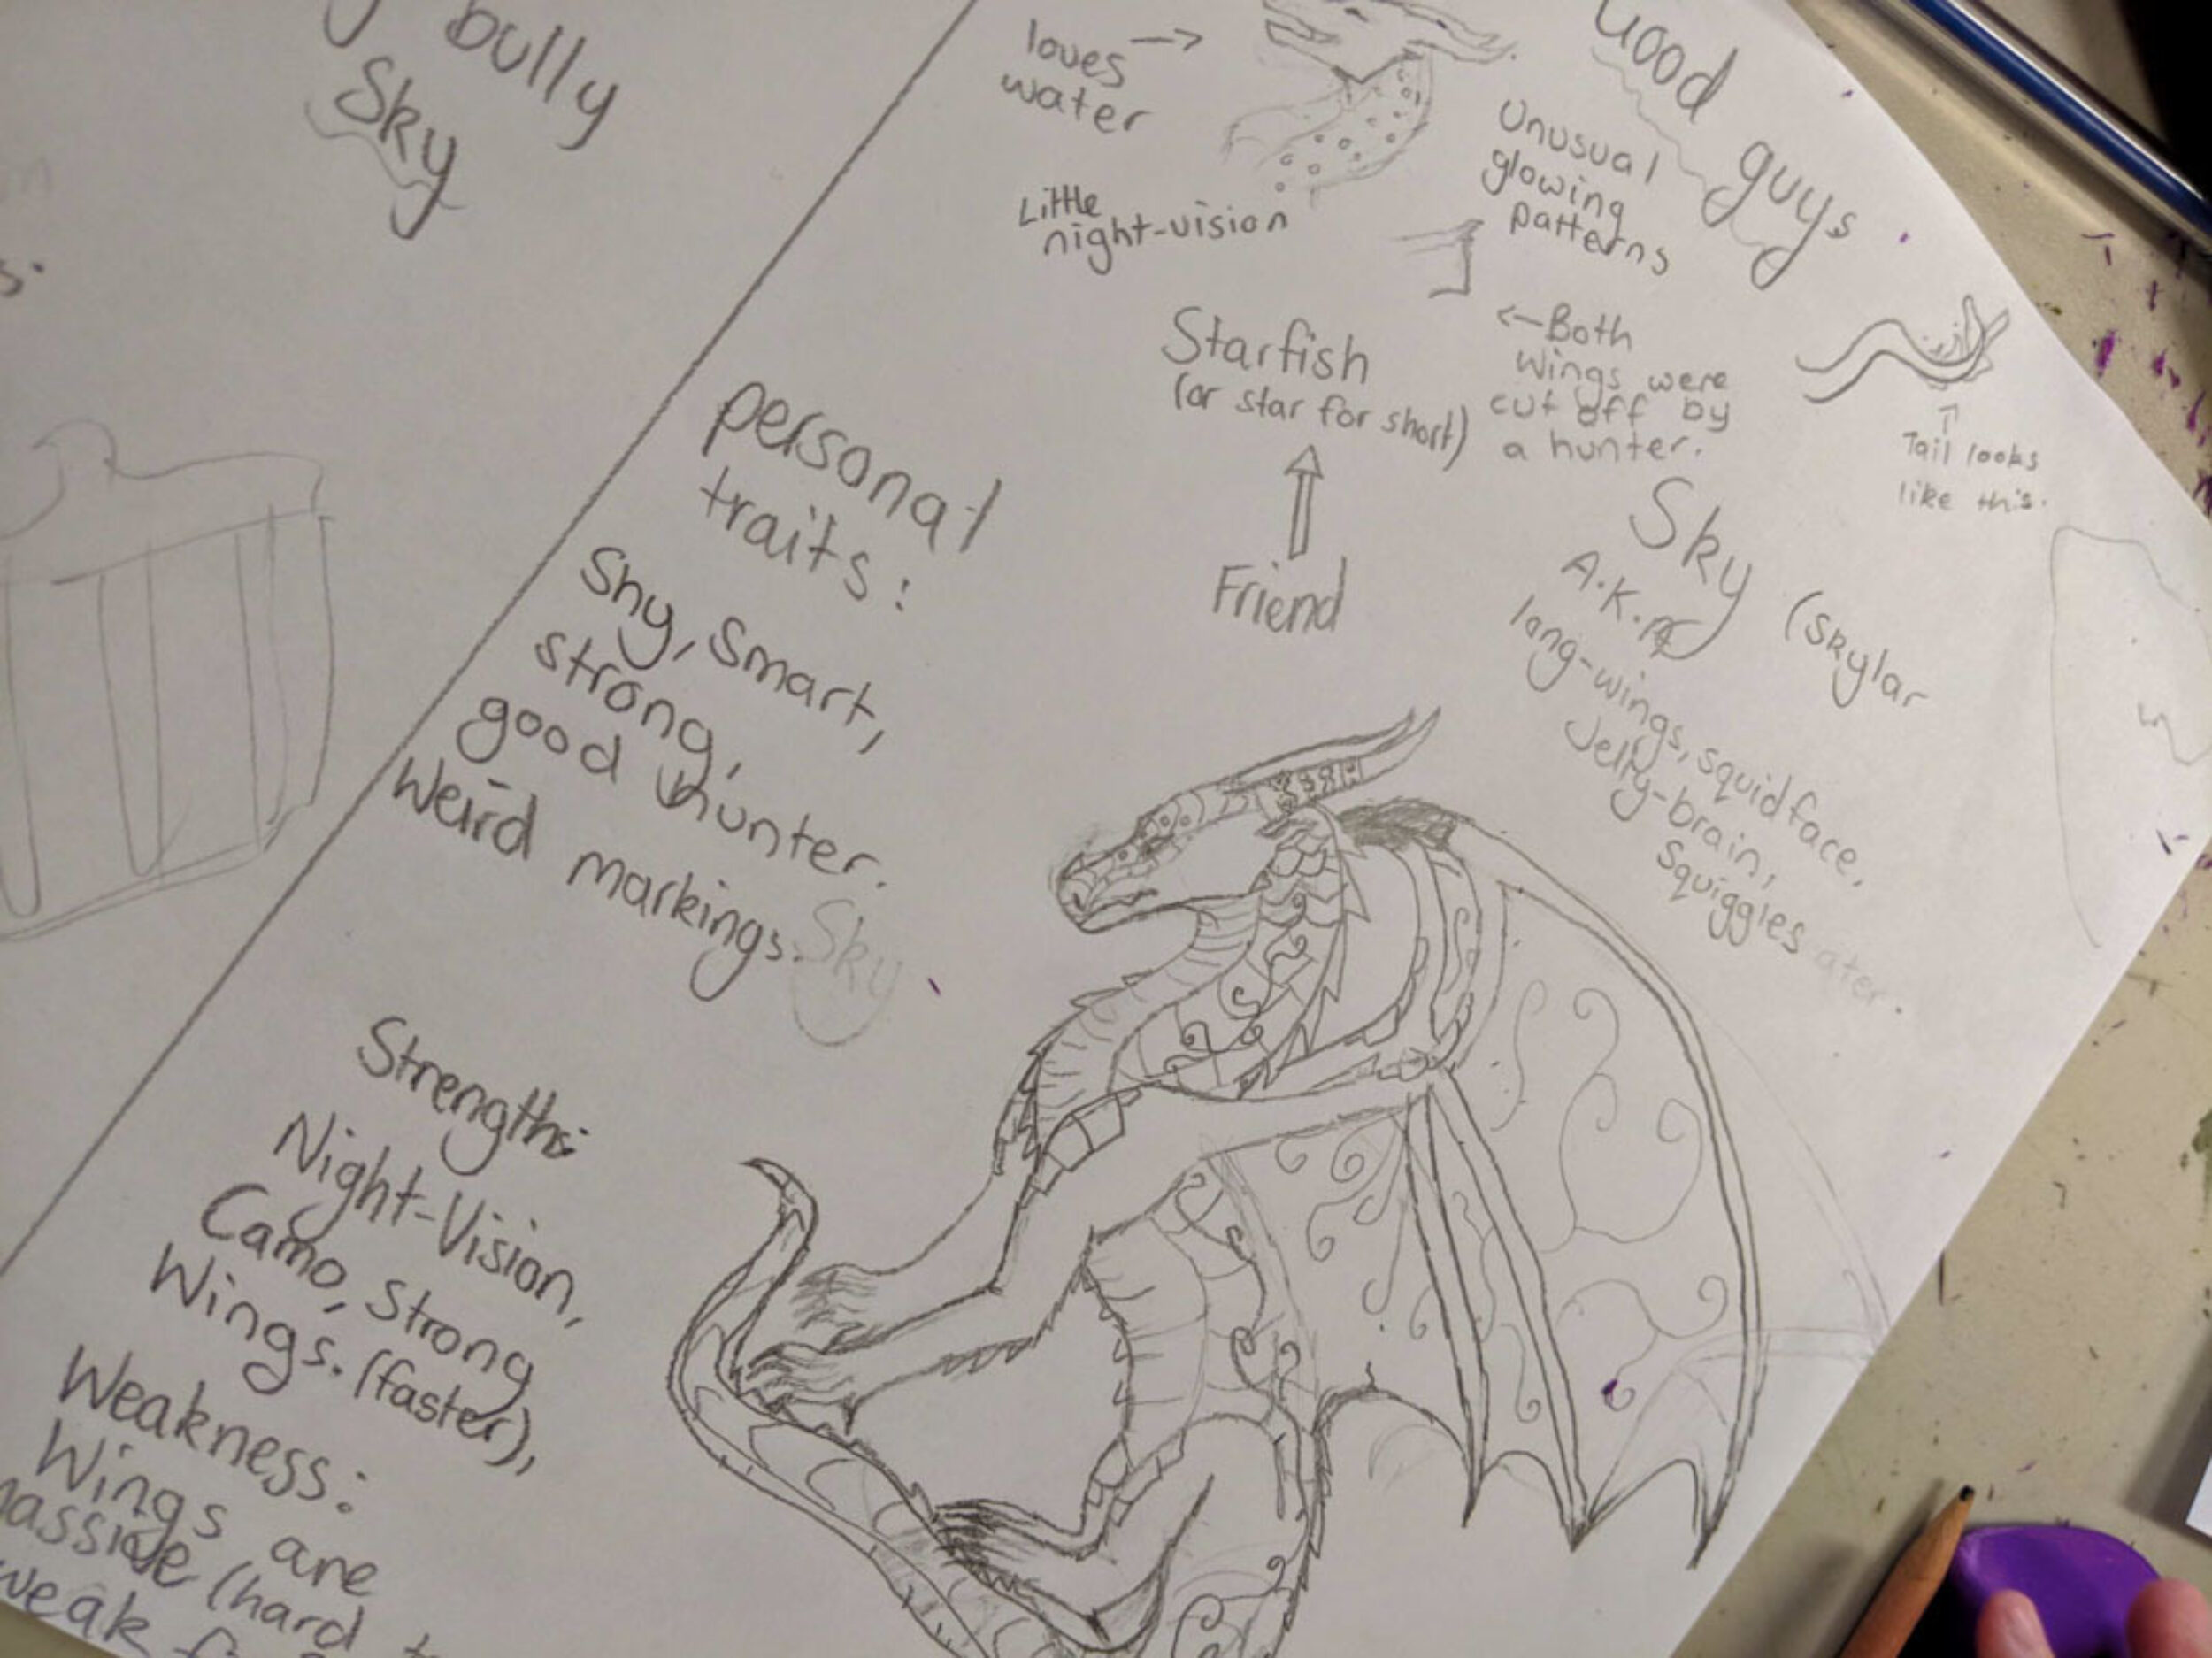 bully
Sky
Good guys
loves
water
Little
night-vision
Unusual
glowing
patterns
Starfish
(or star for short)
←Both
wings were
cut off by
a hunter.
Tail looks
like this.
Friend
Sky (Skylar
A.K.A
long-wings, squidface,
Jelly-brain,
Squiggles ater.
personal
traits:
Shy, Smart,
strong,
good hunter.
Weird markings.
Sky
Strengths:
Night-Vision,
Camo, Strong
Wings. (faster),
Weakness:
Wings are
(hard
weak